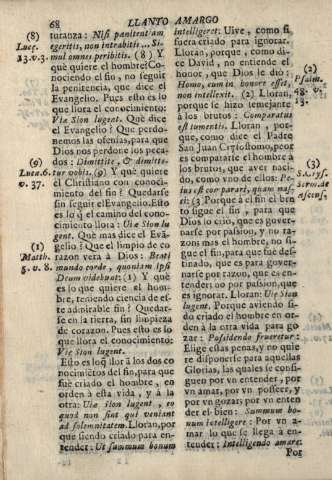 68 LLANTO AMARGO
(8)
Luc.
13.v.3.
(9)
Luca.6.
v. 37.
(1)
Matth.
5. v. 8.
turanza: Nisi pœnitentiam
egeritis, non intrabitis... Si-
mul omnes peribitis. (8) Y
què quiere el hombre? Co-
nociendo el fin, no seguir
la penitencia, que dice el
Evangelio. Pues esto es lo
que llora el conocimiento:
Viæ Sion lugent. Què dice
el Evangelio? Que perdo-
nemos las ofensas, para que
Dios nos perdone los peca-
dos: Dimittite, & dimitte-
tur vobis. (9) Y què quiere
el Christiano con conoci-
miento del fin? Quedarse
sin seguir el Evangelio. Esto
es lo q̃ el camino del cono-
cimiento llora: Viæ Sion lu-
gent. Què mas dice el Evã-
gelio? Que el limpio de co-
razon verà à Dios: Beati
mundo corde, quoniam ipsi
Deum videbunt: (1) Y què
es lo que quiere el hom-
bre, teniendo ciencia de es-
te admirable fin? Quedar-
se en la tierra, sin limpieza
de corazon. Pues esto es lo
que llora el conocimiento:
Viæ Sion lugent.
Esto es lo q̃ llora à los dos co-
nocimiẽtos del fin, para què
fuè criado el hombre, en
orden à esta vida, y à la
otra: Viæ Sion lugent, eo
quod non sint qui veniant
ad solemnitatem. Lloran, por
que siendo criado para en-
tender: Ut summum bonum
intelligeret: Vive, como si
fuera criado para ignorar.
Lloran, porque, como di-
ce David, no entiende el
honor, que Dios le diò:
Homo, cum in honore esset,
non intellexit. (2) Lloran,
porque se hizo semejante
à los brutos: Comparatus
est jumentis. Lloran, por-
que, como dice el Padre
San Juan Crysostomo, peor
es compararse el hombre à
los brutos, que aver naci-
do, como vno de ellos: Pe-
ius est comparari, quam nas-
ci: (3) Porque à el fin el bru-
to sigue el fin, para que
Dios lo criò, que es gover-
narse por passion, y no ra-
zon; mas el hombre, no si-
gue el fin, para que es for-
mado; què es para gover-
narse por razon, que es en-
tender: no por passion; que
es ignorar. Lloran: Viæ Sion
lugent. Porque aviendo si-
do criado el hombre en or-
den à la otra vida para go-
zar: Possidendo frueretur:
Elige estas penas, y no quie-
re disponerse para aquellas
Glorias, las quales se consi-
guen por vn entender, por
vn amar, por vn posseer, y
por vn gozar; por vn enten-
der el bien: Summum bo-
num intelligere: Por vn a-
mar lo que se llega à en-
tender: Intelligendo amare:
Por
(2)
Psalm.
48. v.
13.
(3)